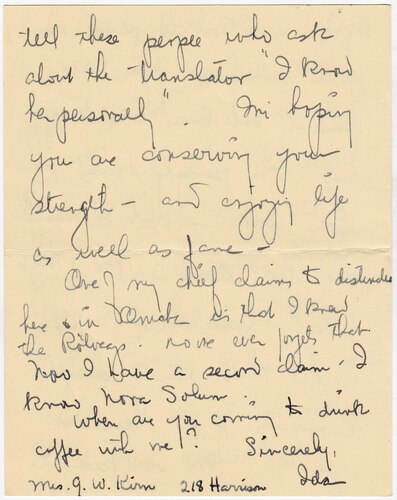 tell these people who ask
about the translator "I know
her personally". I'm hoping
you are conserving your
strength - and enjoying life
as well as fame -
One of my chief claims to distinction
here is in is that I knew
the Rölvaags. No one ever forgets that
Now I have a second claim. I
know Nora Solum.
When are you coming to drink
coffee with me? Sincerely,
Mrs. G. W. Kirn 218 Harrison Ida